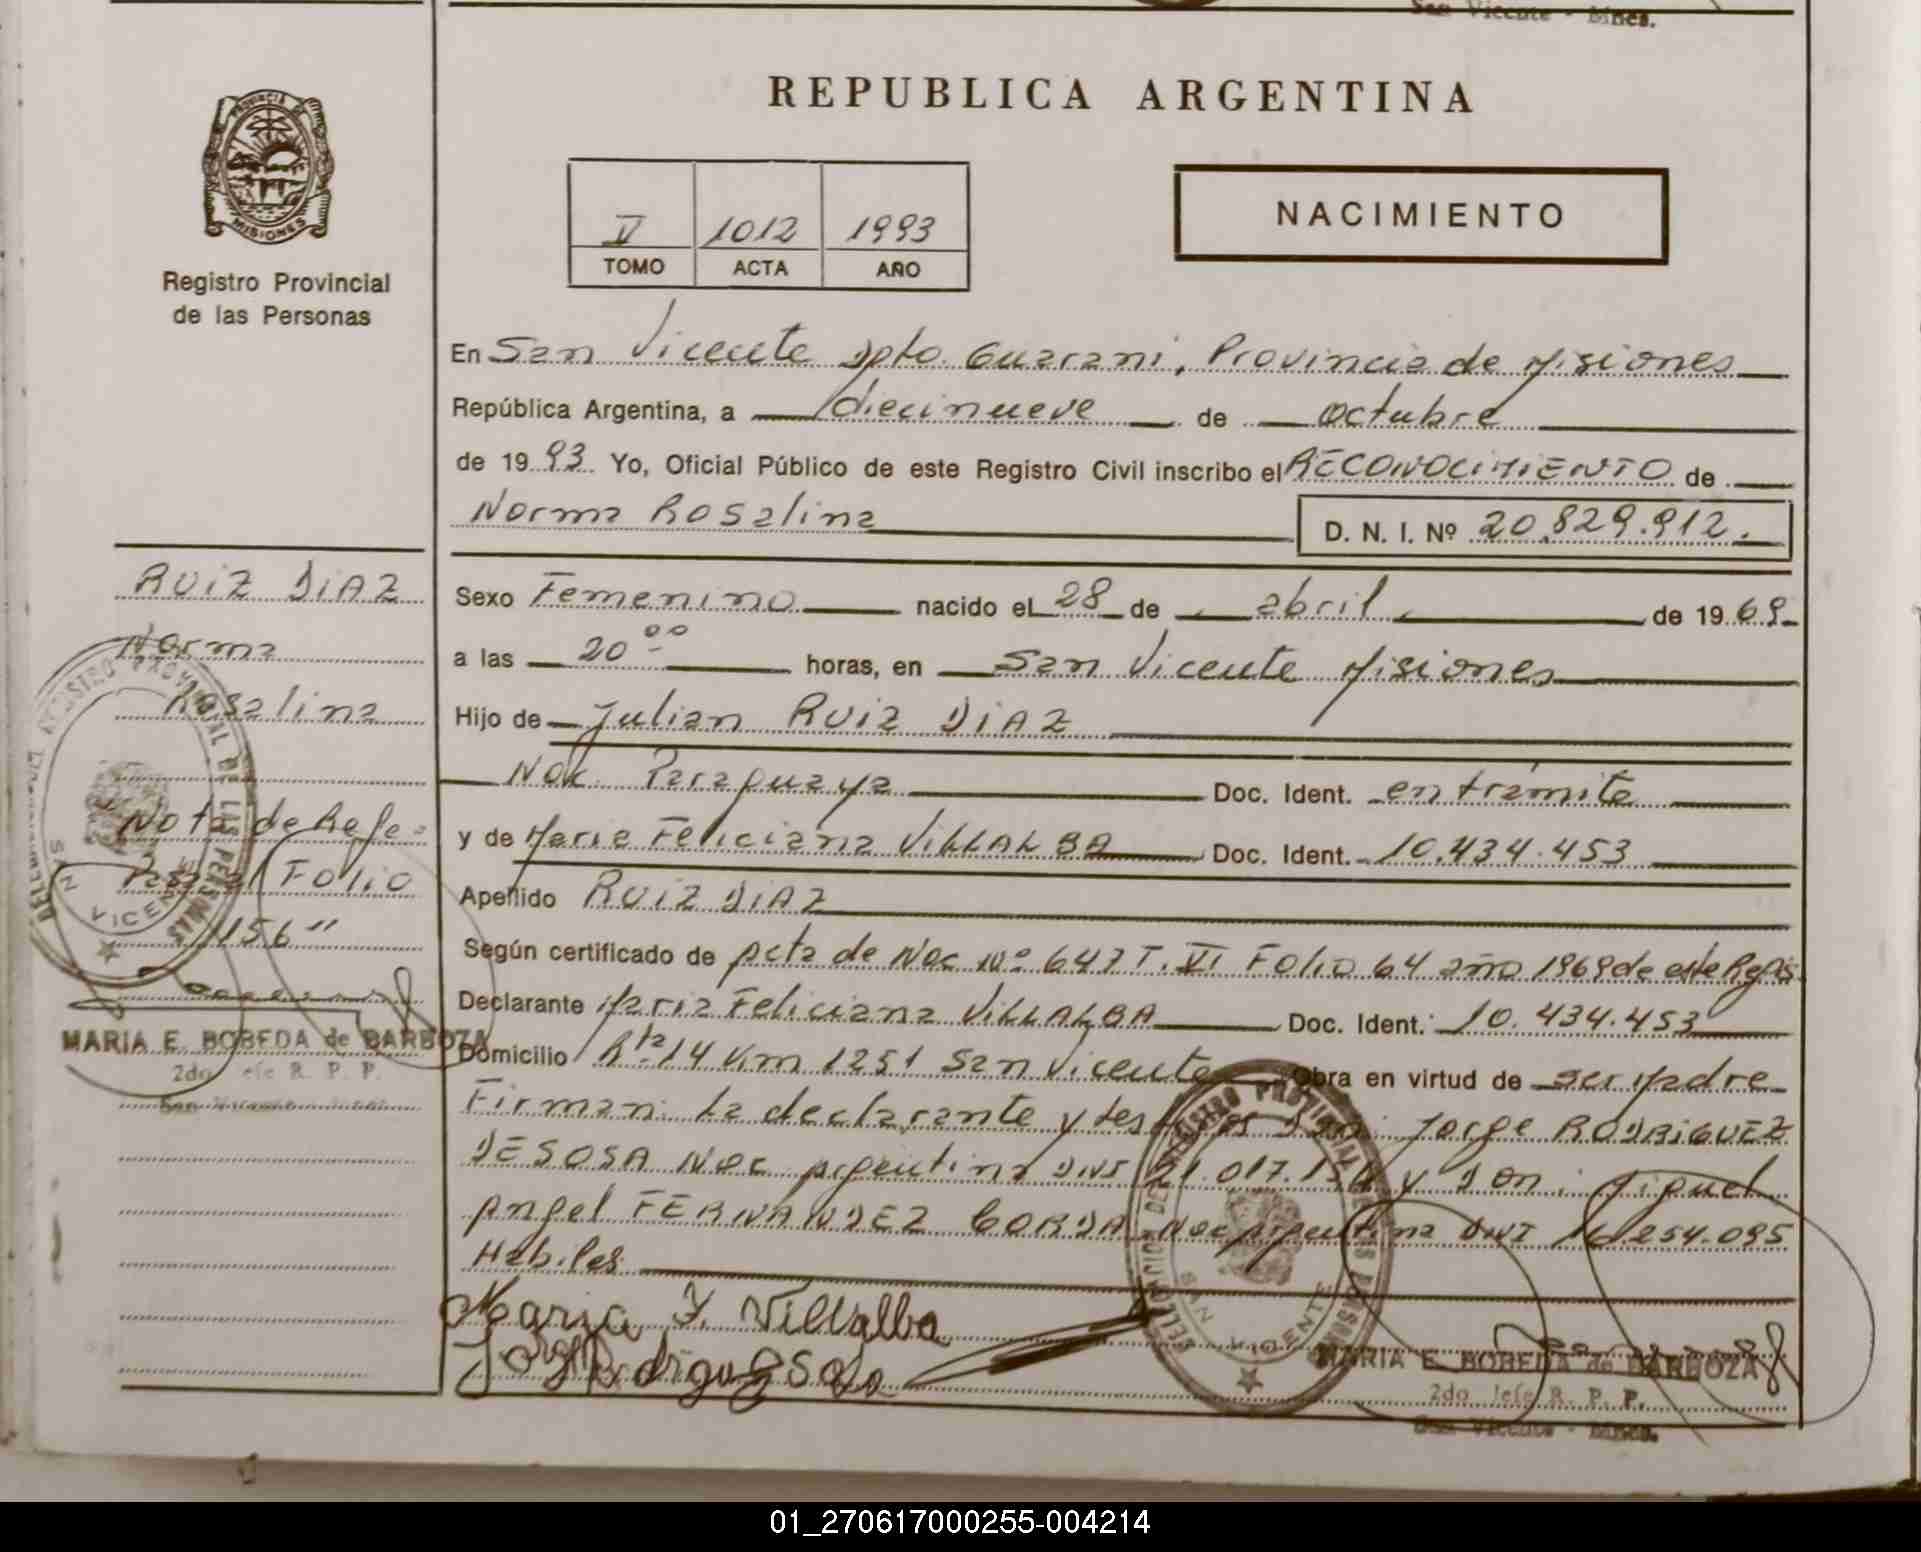 San Vicente - Mnes.
REPUBLICA ARGENTINA
PROVINCIA DE
MISIONES
Registro Provincial
de las Personas
V 1012 1993
TOMO ACTA AÑO
NACIMIENTO
En San Vicente Dpto. Guarani, Provincia de Misiones
República Argentina, a diecinueve de octubre
de 19 93. Yo, Oficial Público de este Registro Civil inscribo el RECONOCIMIENTO de
Norma Rosalina D. N. I. Nº 20.829.912.
Sexo Femenino nacido el 28 de abril de 19 69
a las 20 ºº horas, en San Vicente Misiones
Hijo de Julian RUIZ DIAZ
Nac. Paraguaya Doc. Ident. en trámite
y de Maria Feliciana VILLALBA Doc. Ident. 10.434.453
Apellido RUIZ DIAZ
Según certificado de Acta de Nac Nº 647 T. VI Folio 64 año 1969 de este Regis.
Declarante Maria Feliciana VILLALBA Doc. Ident.: 10.434.453
Domicilio Rta 14 Km 1251 San Vicente Obra en virtud de ser Madre
Firman: La declarante y testigos Don: Jorge RODRIGUEZ
DE SOSA Nac Argentina DNI 21.017.154 y Don: Miguel
Angel FERNANDEZ BORDA Nac Argentina DNI 16.254.095
Habiles
Maria F. Villalba
Jorge Rodriguez Sosa
DELEGACION DEL REGISTRO PROVINCIAL DE LAS PERSONAS
SAN VICENTE
MARIA E. BOBEDA de BARBOZA
2do. Jefe R. P. P.
San Vicente - Mnes.
RUIZ DIAZ
Norma
Rosalina
Nota de Refe-
Folio
156"
DELEGACION DEL REGISTRO PROVINCIAL DE LAS PERSONAS
SAN VICENTE
MARIA E. BOBEDA de BARBOZA
2do. Jefe R. P. P.
01_270617000255-004214